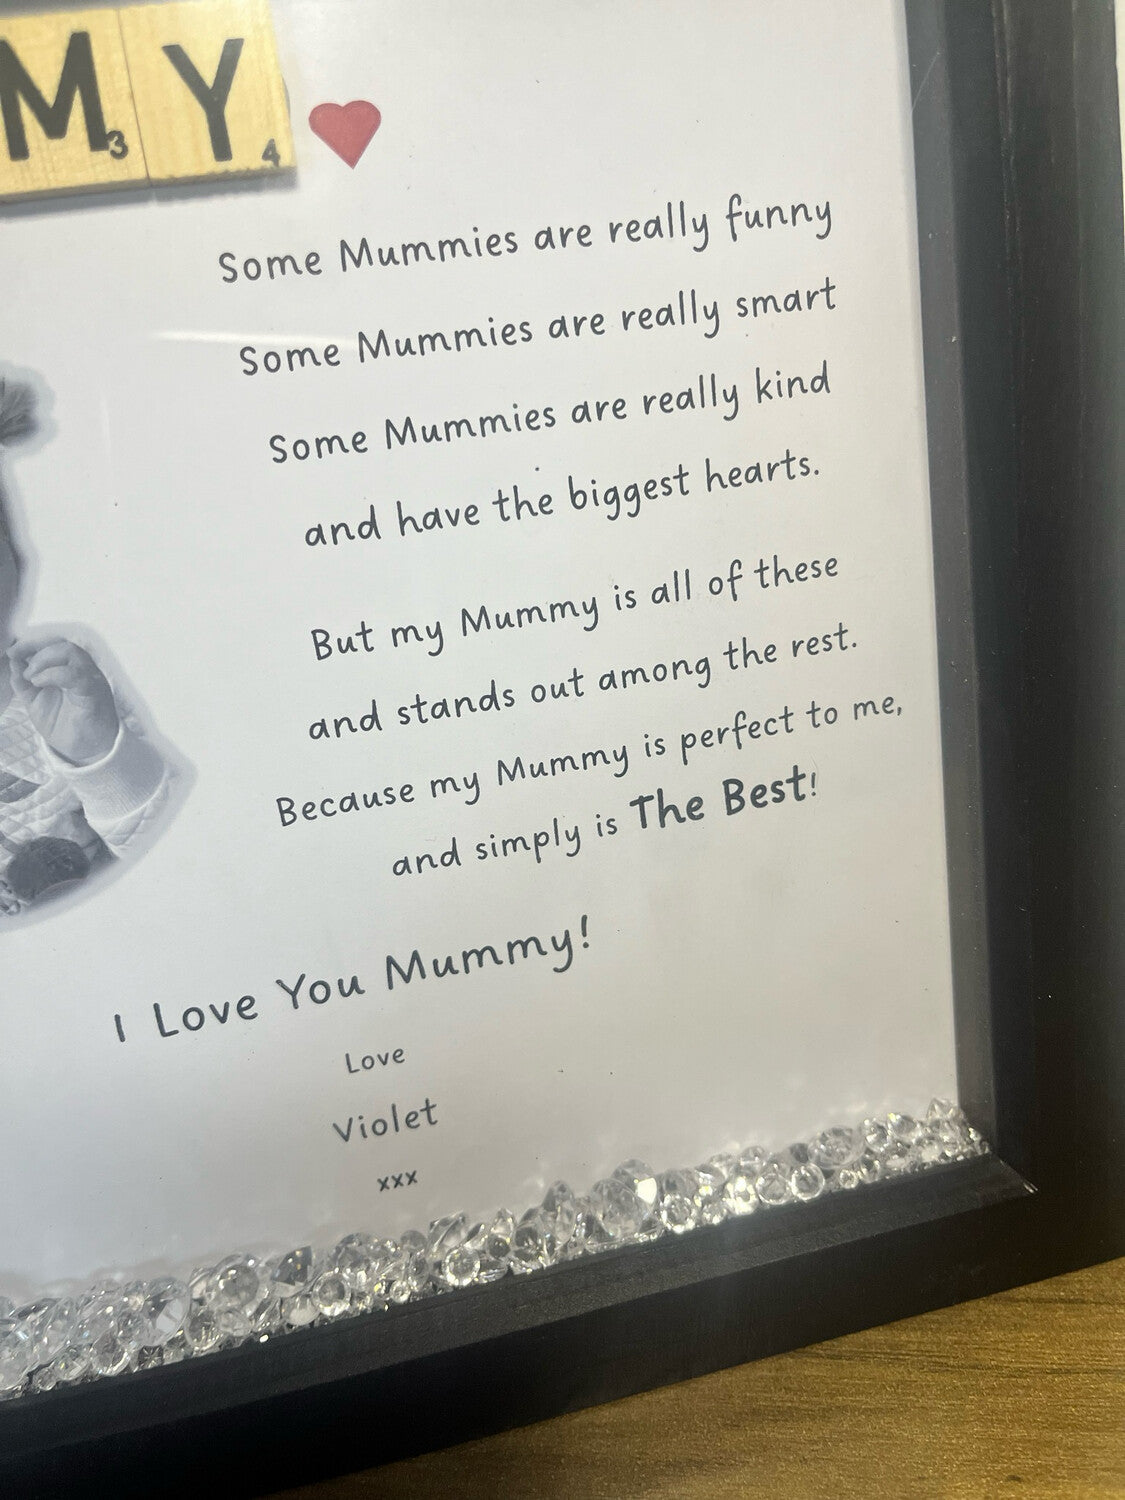 MY
3 4
Some Mummies are really funny
Some Mummies are really smart
Some Mummies are really kind
and have the biggest hearts.
But my Mummy is all of these
and stands out among the rest.
Because my Mummy is perfect to me,
and simply is The Best!
I Love You Mummy!
Love
Violet
xxx